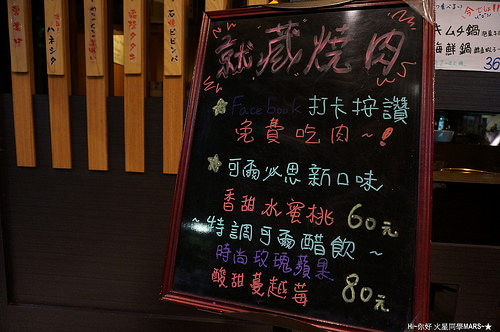 石鍋ビビンバ
ハネシタ
就藏燒肉
Facebook 打卡按讚
免費吃肉~!
可爾必思新口味
香甜水蜜桃 60元
~特調可爾醋飲~
時尚玫瑰蘋果
酸甜蔓越莓 80元
キムチ鍋
海鮮鍋
36
Hi~你好 火星同學MARS~★